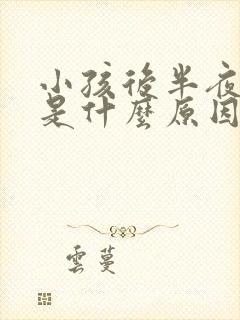 小孩後半夜
是什麼原因
雲蔓